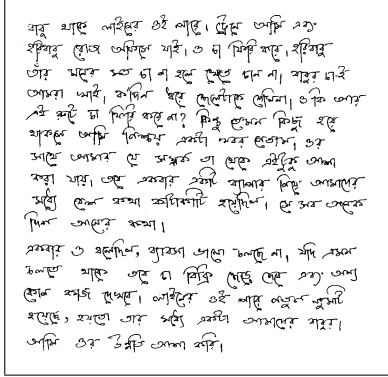 বাবু থাকে লাইনের ওই পারে। ট্রেনে আমি এবং
হরিবাবু রোজ অফিসে যাই। ও চা ফিরি করে। হরিবাবু
তাঁর মনের মত চা না হলে খেতে চান না। বাবুর চা-ই
আমরা খাই। কদিন ধরে ছেলেটাকে দেখিনা। ও কি আর
এই রুটে চা ফিরি করে না? কিন্তু তেমন কিছু হয়ে
থাকলে আমি নিশ্চয় একটা খবর পেতাম। ওর
সাথে আমার যে সম্পর্ক তা থেকে এইটুকু আশা
করা যায়। তবে একবার একটা ব্যাপার নিয়ে আমাদের
মধ্যে বেশ কথা কাটাকাটি হয়েছিল। সে সব অনেক
দিন আগের কথা।
একবার ও বলেছিল, ব্যাবসা ভালো চলছে না। যদি এমন
চলতে থাকে তবে চা বিক্রি ছেড়ে দেবে এবং অন্য
কোন কাজ দেখবে। লাইনের ওই পারে নতুন জুমটি
হয়েছে, হয়তো তার মধ্যে একটা আমাদের বাবুর।
আমি ওর উন্নতি আশা করি।